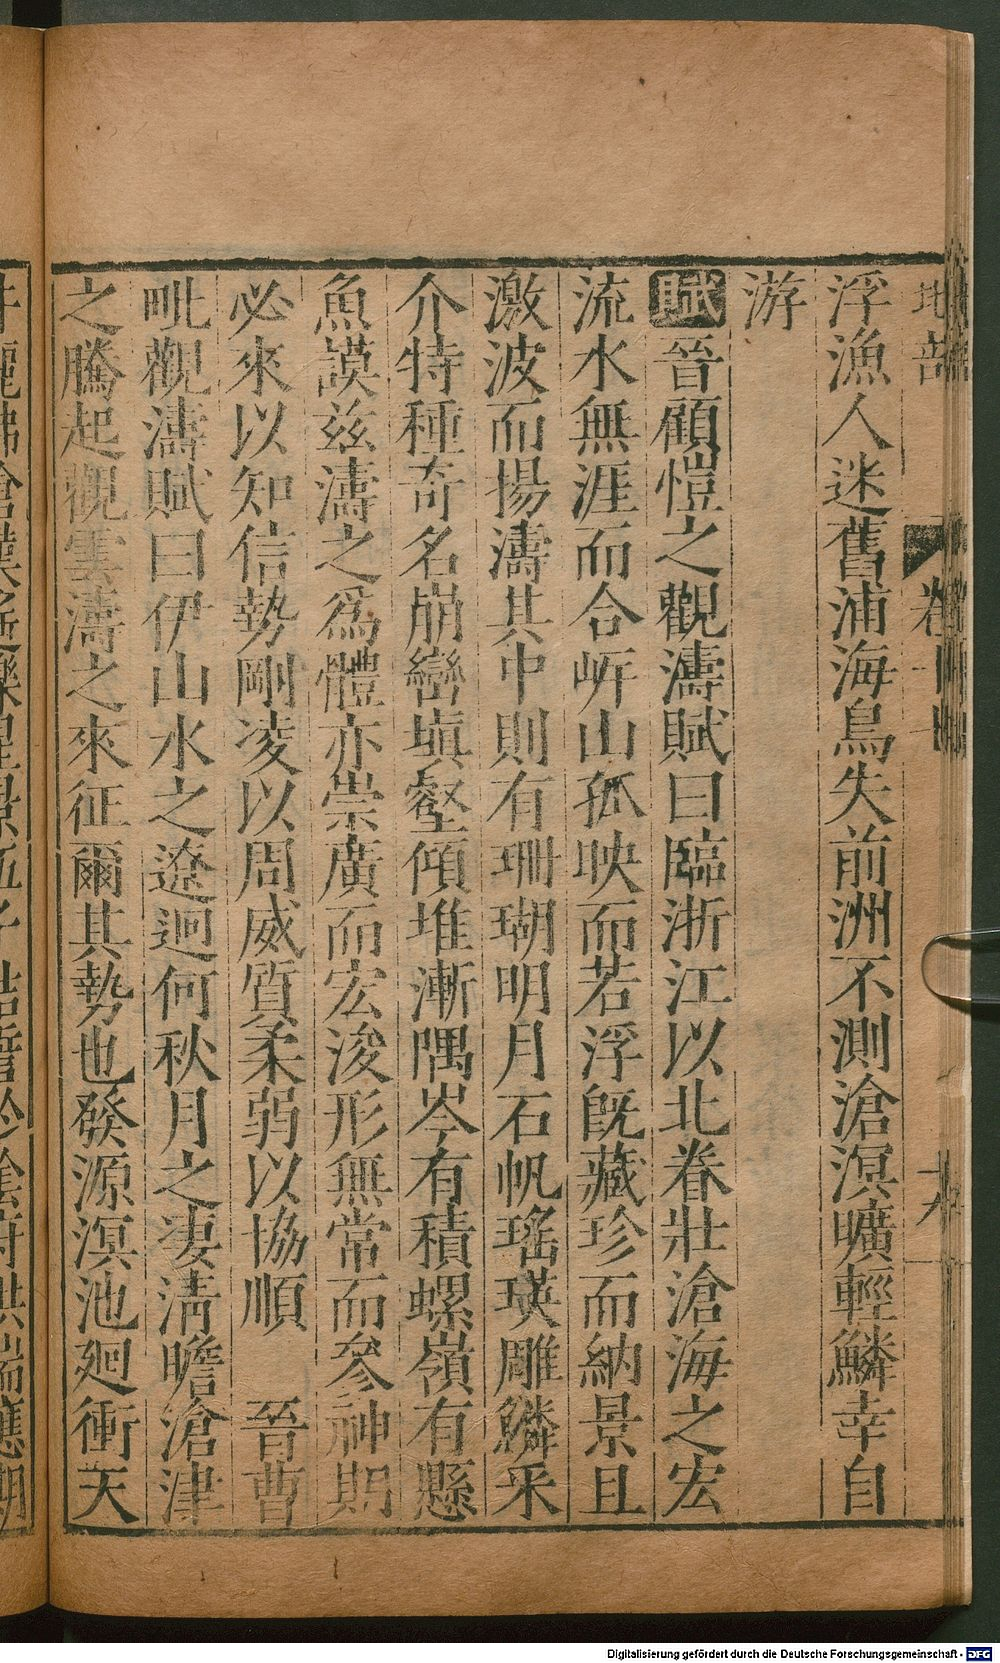 地部
卷十
十九
浮漁人迷舊浦海鳥失前洲不測滄溟曠輕鱗幸自
游
賦晉顧愷之觀濤賦曰臨浙江以北眷壯滄海之宏
流水無涯而合岍山孤映而若浮旣藏珍而納景且
激波而揚濤其中則有珊瑚明月石帆瑤瑛雕鱗采
介特種奇名崩巒塡壑傾堆漸隅岑有積螺嶺有懸
魚謨茲濤之爲體亦崇廣而宏浚形無常而參神則
必來以知信勢剛凌以周威質柔弱以協順 晉曹
毗觀濤賦曰伊山水之遼迥何秋月之淒淸瞻滄津
之騰起觀雲濤之來征爾其勢也發源溟池廻衝天
Digitalisierung gefördert durch die Deutsche Forschungsgemeinschaft - DFG